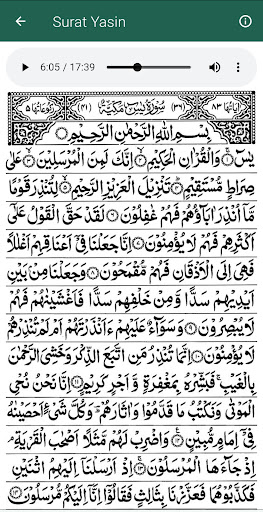 Surat Yasin
6:05 / 17:39
اٰيَاتُهَا ٨٣ (٣٦) سُوْرَةُ يٰسٓ مَكِّيَّةٌ (٤١) رُكُوْعَاتُهَا ٥
بِسْمِ اللّٰهِ الرَّحْمٰنِ الرَّحِيْمِ
يٰسٓ ۝ وَالْقُرْاٰنِ الْحَكِيْمِ ۝ اِنَّكَ لَمِنَ الْمُرْسَلِيْنَ ۝ عَلٰى
صِرَاطٍ مُّسْتَقِيْمٍ ۝ تَنْزِيْلَ الْعَزِيْزِ الرَّحِيْمِ ۝ لِتُنْذِرَ قَوْمًا
مَّاۤ اُنْذِرَ اٰبَآؤُهُمْ فَهُمْ غٰفِلُوْنَ ۝ لَقَدْ حَقَّ الْقَوْلُ عَلٰۤى
اَكْثَرِهِمْ فَهُمْ لَا يُؤْمِنُوْنَ ۝ اِنَّا جَعَلْنَا فِيْۤ اَعْنَاقِهِمْ اَغْلٰلًا
فَهِيَ اِلَى الْاَذْقَانِ فَهُمْ مُّقْمَحُوْنَ ۝ وَجَعَلْنَا مِنْۢ بَيْنِ
اَيْدِيْهِمْ سَدًّا وَّمِنْ خَلْفِهِمْ سَدًّا فَاَغْشَيْنٰهُمْ فَهُمْ
لَا يُبْصِرُوْنَ ۝ وَسَوَآءٌ عَلَيْهِمْ ءَاَنْذَرْتَهُمْ اَمْ لَمْ تُنْذِرْهُمْ
لَا يُؤْمِنُوْنَ ۝ اِنَّمَا تُنْذِرُ مَنِ اتَّبَعَ الذِّكْرَ وَخَشِيَ الرَّحْمٰنَ
بِالْغَيْبِ ۚ فَبَشِّرْهُ بِمَغْفِرَةٍ وَّاَجْرٍ كَرِيْمٍ ۝ اِنَّا نَحْنُ نُحْيِ
الْمَوْتٰى وَنَكْتُبُ مَا قَدَّمُوْا وَاٰثَارَهُمْ ؕ وَكُلَّ شَيْءٍ اَحْصَيْنٰهُ
فِيْۤ اِمَامٍ مُّبِيْنٍ ۝ وَاضْرِبْ لَهُمْ مَّثَلًا اَصْحٰبَ الْقَرْيَةِ ۘ
اِذْ جَآءَهَا الْمُرْسَلُوْنَ ۝ اِذْ اَرْسَلْنَاۤ اِلَيْهِمُ اثْنَيْنِ
فَكَذَّبُوْهُمَا فَعَزَّزْنَا بِثَالِثٍ فَقَالُوْۤا اِنَّاۤ اِلَيْكُمْ مُّرْسَلُوْنَ ۝